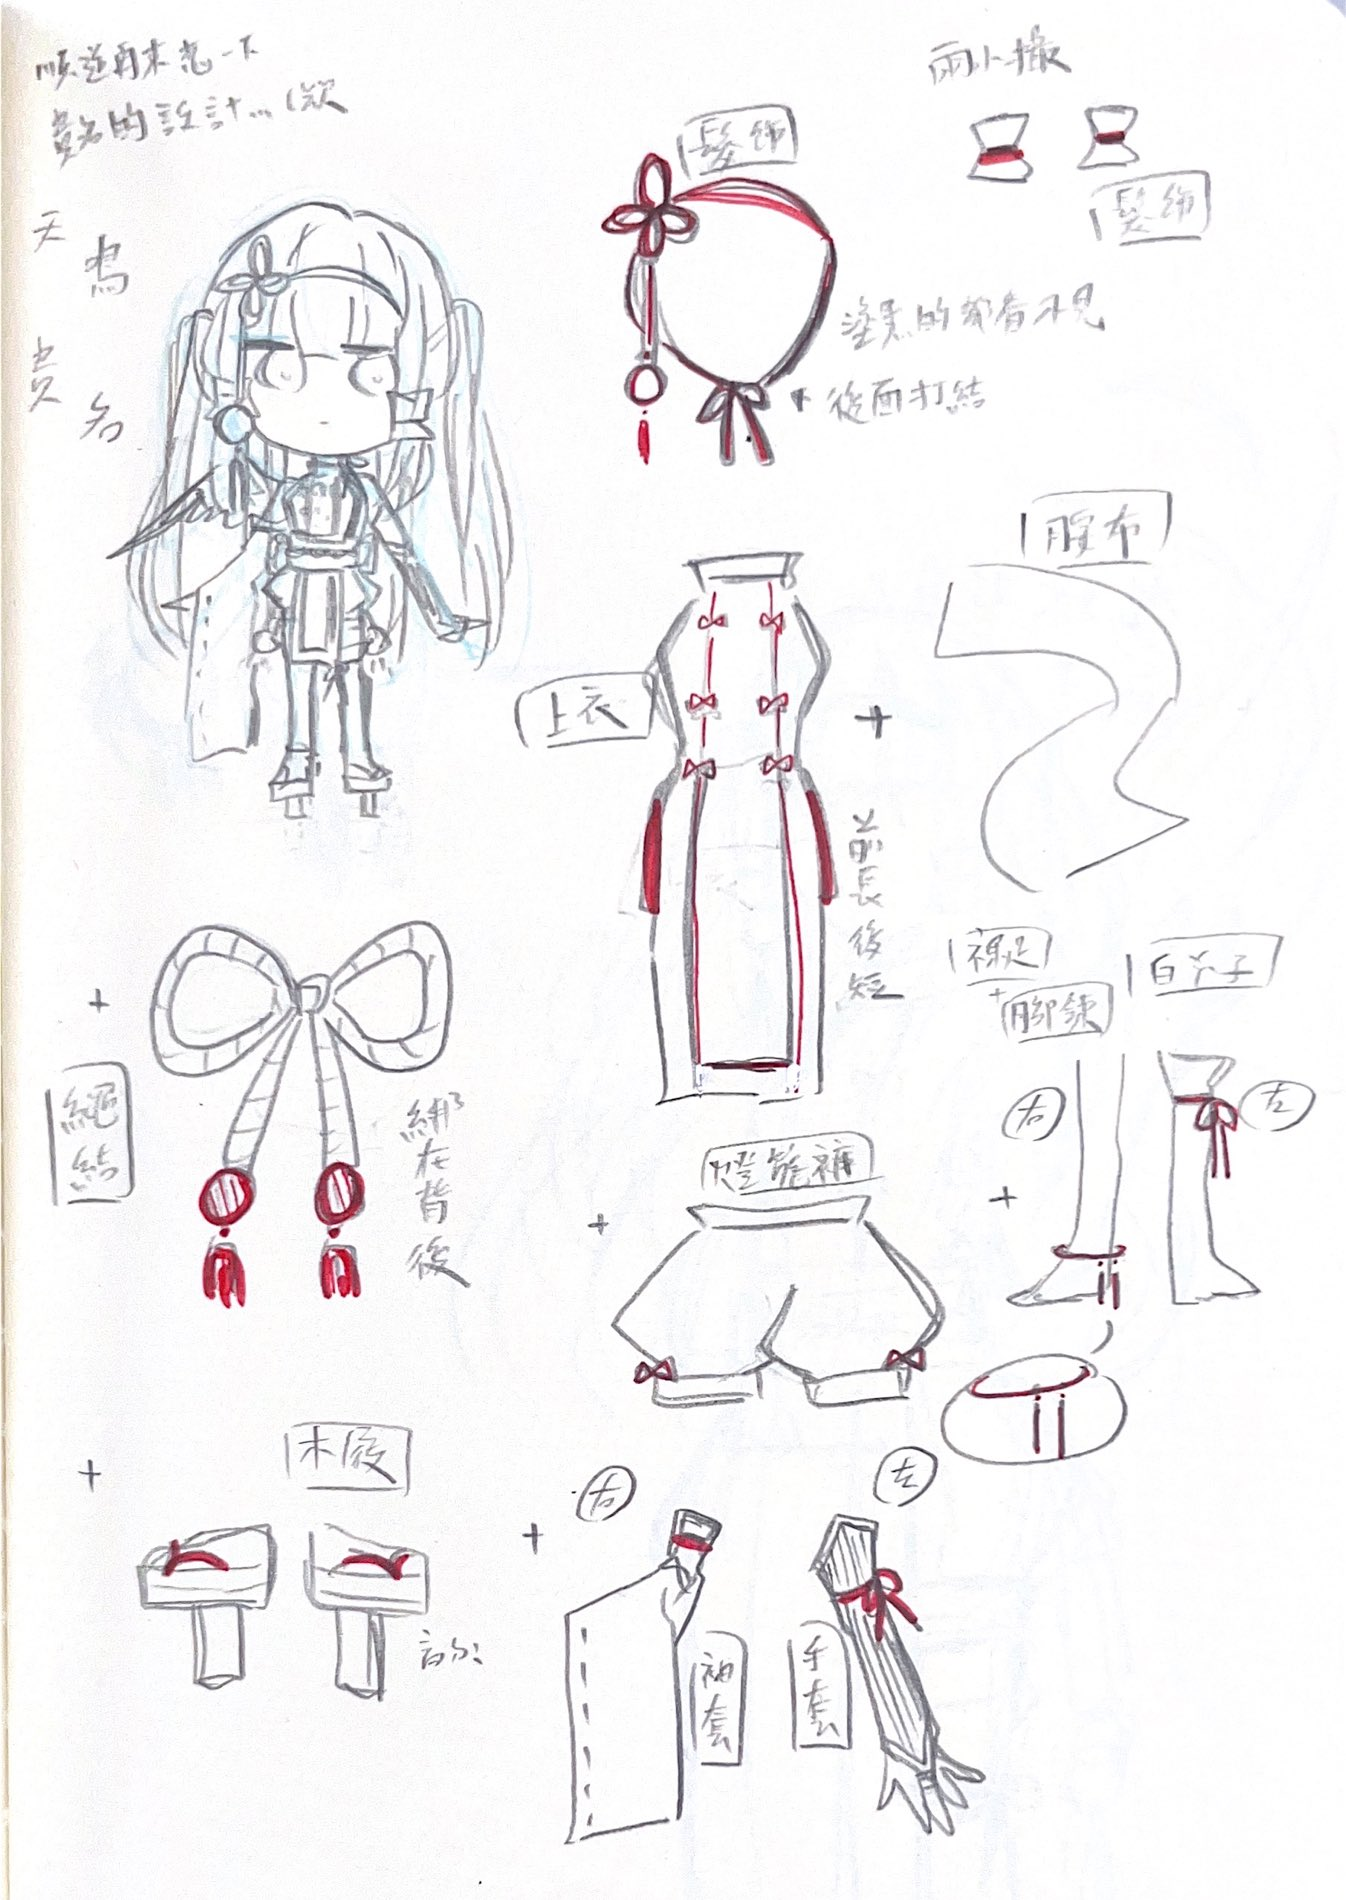 順道再來畫一下
貴名的設計...(欸
天鳴貴名
髮飾
兩小撮
髮飾
塗黑的都看不見
後面打結
腰布
上衣
+
前長後短
裸足
+
腳鍊
白六子
右
左
+
+
繩結
綁在背後
燈籠褲
+
+
木屐
+
右
左
袖套
手套